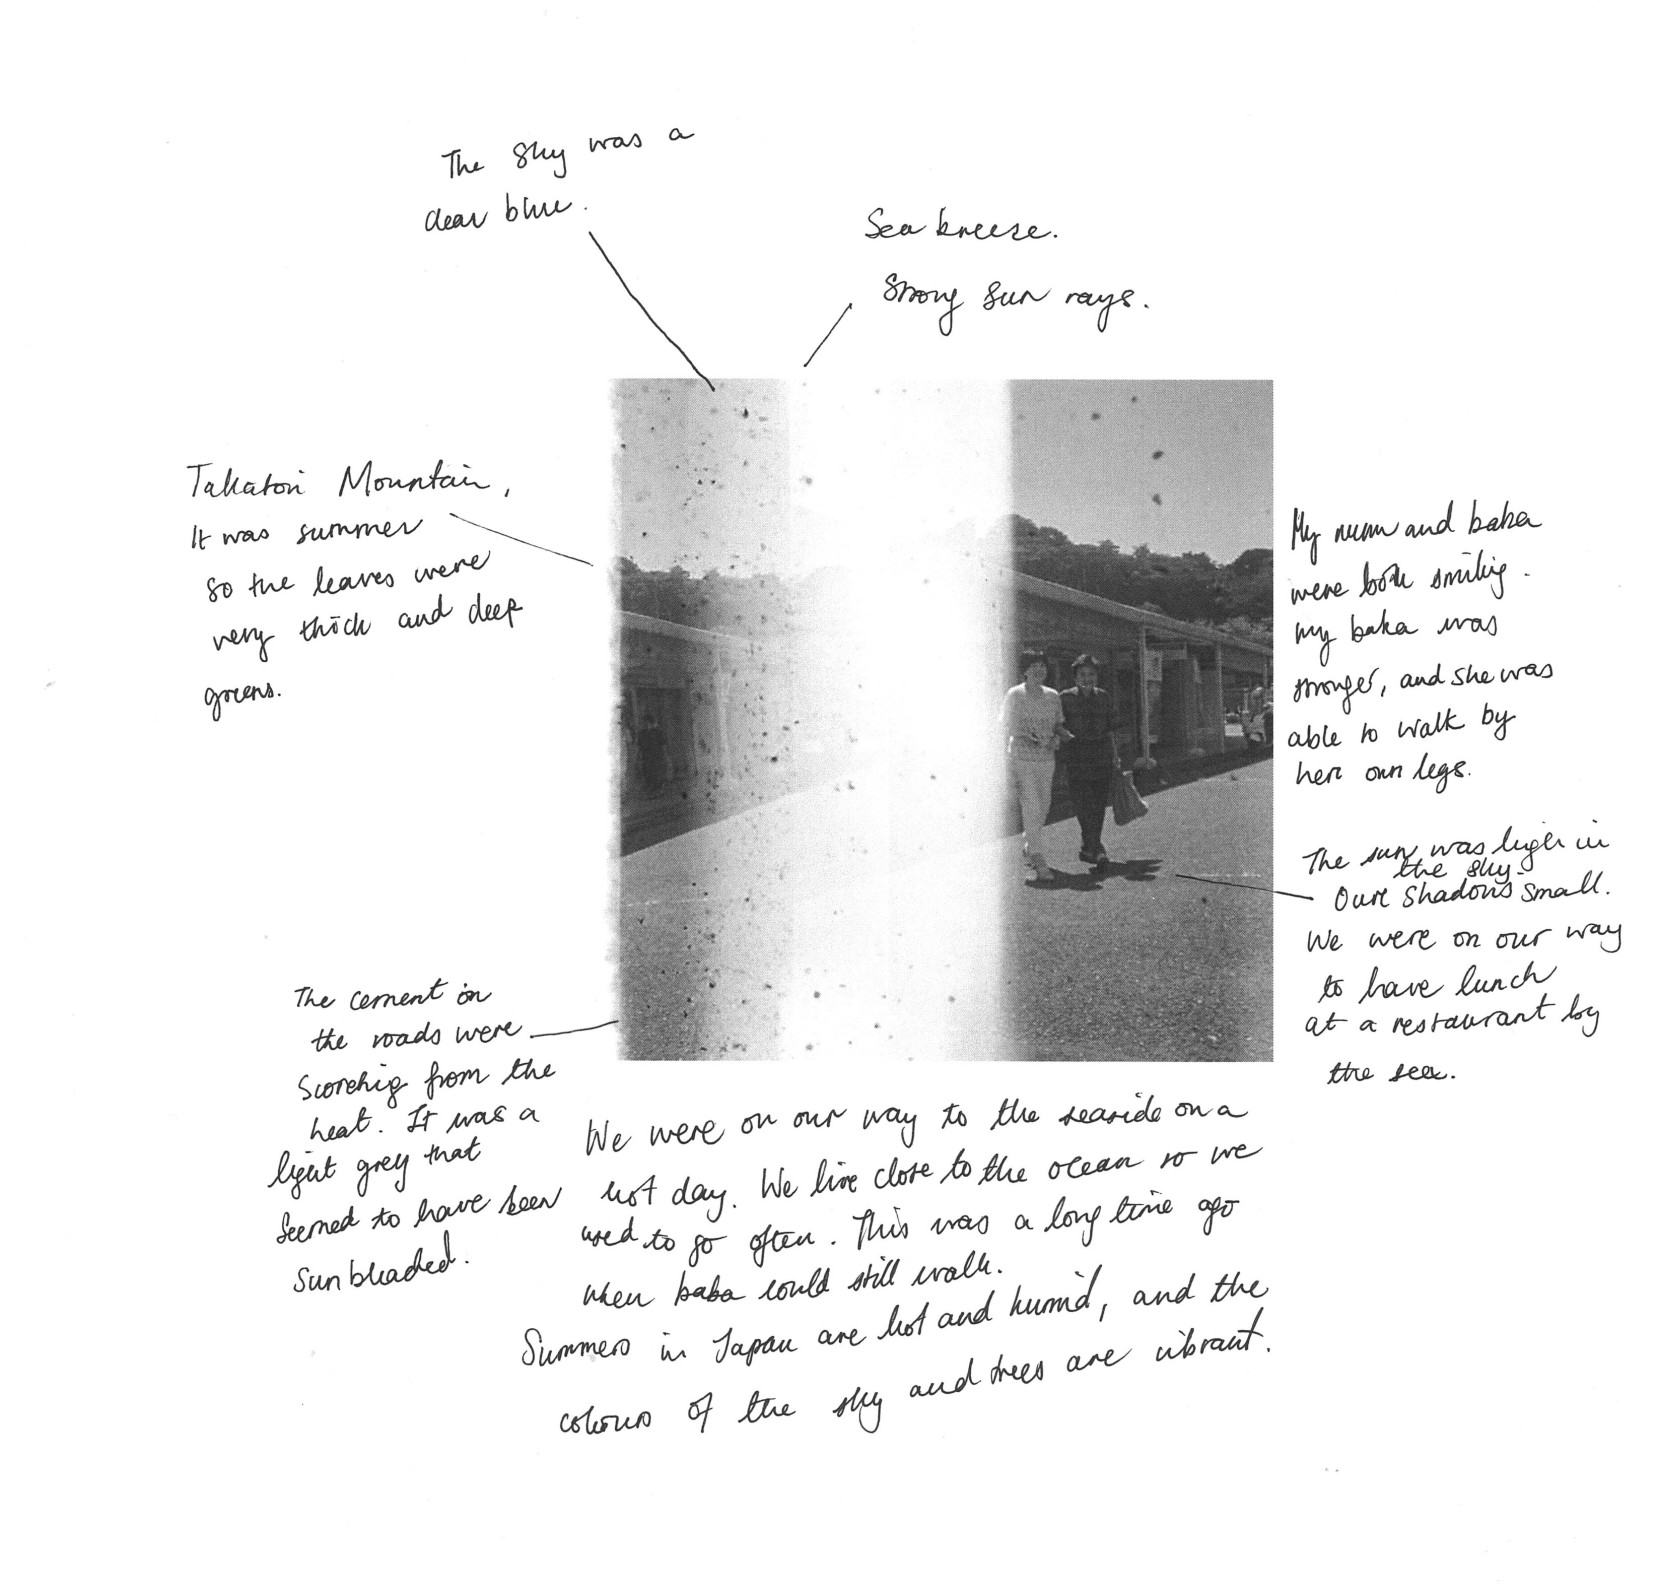 The sky was a
clear blue.
Sea breeze.
Strong sun rays.
Takatori Mountain,
It was summer
so the leaves were
very thick and deep
greens.
My mum and baba
were both smiling.
My baba was
stronger, and she was
able to walk by
her own legs.
The sun was high in
the sky.
Our shadows small.
We were on our way
to have lunch
at a restaurant by
the sea.
The cement on
the roads were
scorching from the
heat. It was a
light grey that
seemed to have been
sunbleached.
We were on our way to the seaside on a
hot day. We live close to the ocean so we
used to go often. This was a long time ago
when baba could still walk.
Summers in Japan are hot and humid, and the
colours of the sky and trees are vibrant.